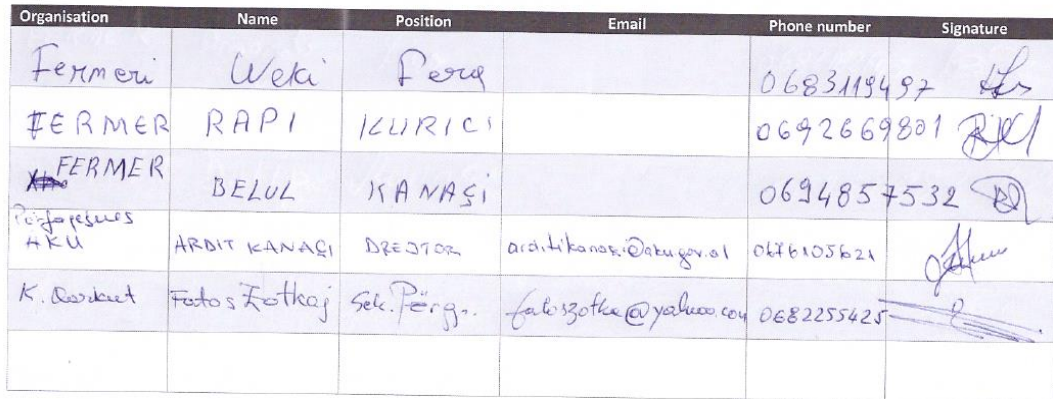 Organisation Name Position Email Phone number Signature
Fermeri Weki Fera 0683119497
FERMER RAPI KURICI 0692669801
FERMER BELUL KANAÇI 0694857532
Përfaqesues
AKU ARDIT KANAÇI DREJTOR arditikanaci@aku.gov.al 0676105621
K. Qarkut Fatos Zotkaj Sek. Përgj. fatoszotka@yahoo.com 0682255425